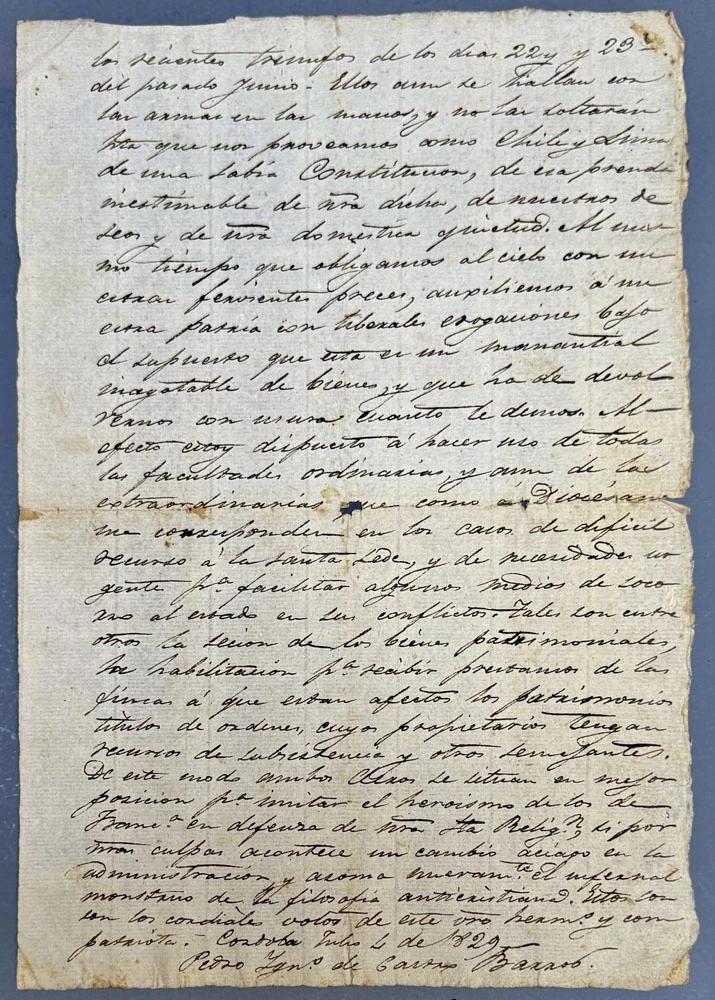 los recientes triunfos de los dias 22 y 23
del pasado Junio. Ellos aun se hallan con
las armas en las manos, y no las soltarán
hta que nos proveamos como Chile y Lima
de una sabia Constitucion, de esa prenda
inestimable de ntra dicha, de nuestros de
seos y de ntra domestica quietud. Al mis
mo tiempo que obligamos al cielo con nu
estras fervientes preces, auxiliemos á nu
estra patria con liberales erogaciónes bajo
el supuesto que esta es un manantial
inagotable de bienes, y que ha de devol
vernos con usura cuanto le demos. Al
efecto estoy dispuesto á hacer uso de todas
las facultades ordinarias, y aun de las
extraordinarias que como á Diocesano
me corresponden en los casos de dificil
recurso á la santa sede, y de necesidades ur
gente pa. facilitar algunos medios de soco
rro al estado en sus conflictos. Tales son entre
otros la secion de los bienes patrimoniales,
la habilitacion pa. recibir prestamos de las
fincas á que estan afectos los patrimonios
titulos de ordenes, cuyos propietarios tengan
recursos de subsistencia y otros semejantes.
De este modo ambos Cleros se situan en mejor
posicion pa. imitar el heroismo de los de
Franca. en defenza de ntra Sta Relign., si por
ntras culpas acontece un cambio aciago en la
administracion y asoma nuevamte. el infernal
monstruo de la filosofia anticristiana. Estos son
son los cordiales votos de este vro hermo. y com
patriota. Cordoba Julio 4 de 1829
Pedro Igno. de Castro Barros.